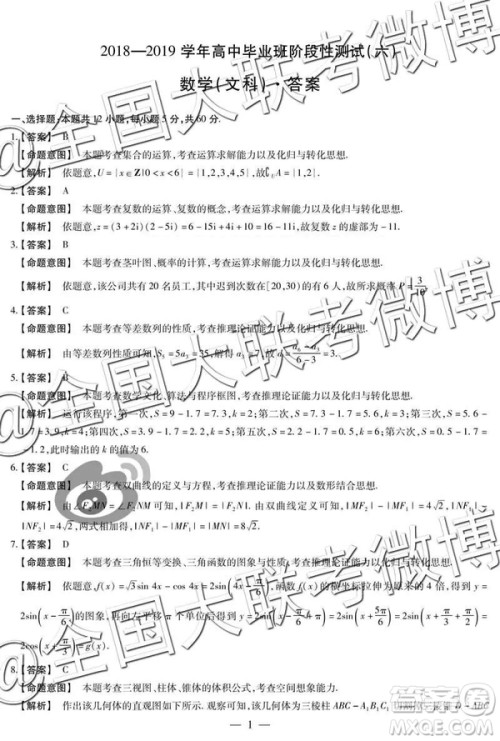 2018—2019 学年高中毕业班阶段性测试(六)
数学(文科)·答案
一、选择题:本题共 12 小题,每小题 5 分,共 60 分.
1.【答案】 B
【命题意图】 本题考查集合的运算,考查运算求解能力以及化归与转化思想.
【解析】 依题意,U={x∈Z|0<x<6}={1,2,3,4,5},故∁UA={1,2}.
2.【答案】 A
【命题意图】 本题考查复数的运算、复数的概念,考查运算求解能力以及化归与转化思想.
【解析】 依题意,z=(3+2i)(2-5i)=6-15i+4i+10=16-11i,故复数 z 的虚部为-11.
3.【答案】 B
【命题意图】 本题考查茎叶图、概率的计算,考查运算求解能力以及化归与转化思想.
【解析】 依题意,该公司共有 20 名员工,其中年龄在[20,30)的有 6 人,故所求概率 P=3/10.
4.【答案】 C
【命题意图】 本题考查等差数列的性质,考查推理论证能力以及化归与转化思想.
【解析】 由等差数列的性质可知,S5=5a3=35,解得 a3=7.故 d=
5.【答案】 B
【命题意图】 本题考查数学文化、算法与程序框图,考查推理论证能力以及化归与转化思想.
【解析】 运行该程序,第一次,S=9-1.7=7.3,k=2;第二次,S=7.3-1.7=5.6,k=3;第三次,S=5.6-
1.7=3.9,k=4;第四次,S=3.9-1.7=2.2,k=5;第五次,S=2.2-1.7=0.5,k=6;第六次,S=0.5-1.7=
-1.2,此时输出的 k 的值为 6.
6.【答案】 C
【命题意图】 本题考查双曲线的定义与方程,考查推理论证能力以及数形结合思想.
【解析】 由∠F2MN=∠F2NM 可知,|F2M|=|F2N|.由双曲线定义可知,|MF2|-|MF1|=4√2,|NF1|-
|NF2|=4√2,两式相加得,|NF1|-|MF1|=|MN|=8√2.
7.【答案】 D
【命题意图】 本题考查三角恒等变换、三角函数的图象与性质,考查推理论证能力以及化归与转化思想.
【解析】 依题意,f(x)=√3sin 4x-cos 4x=2sin(4x-π/6),将函数 f(x)的图象的横坐标拉伸
8.【答案】 C
【命题意图】 本题考查三视图、柱体、锥体的体积公式,考查空间想象能力以及化归与转化思想.
【解析】 作出该几何体的直观图如下图所示.观察可知,该几何体为三棱柱 ABC-A1B1C1
— 1 —
@全国大联考微博